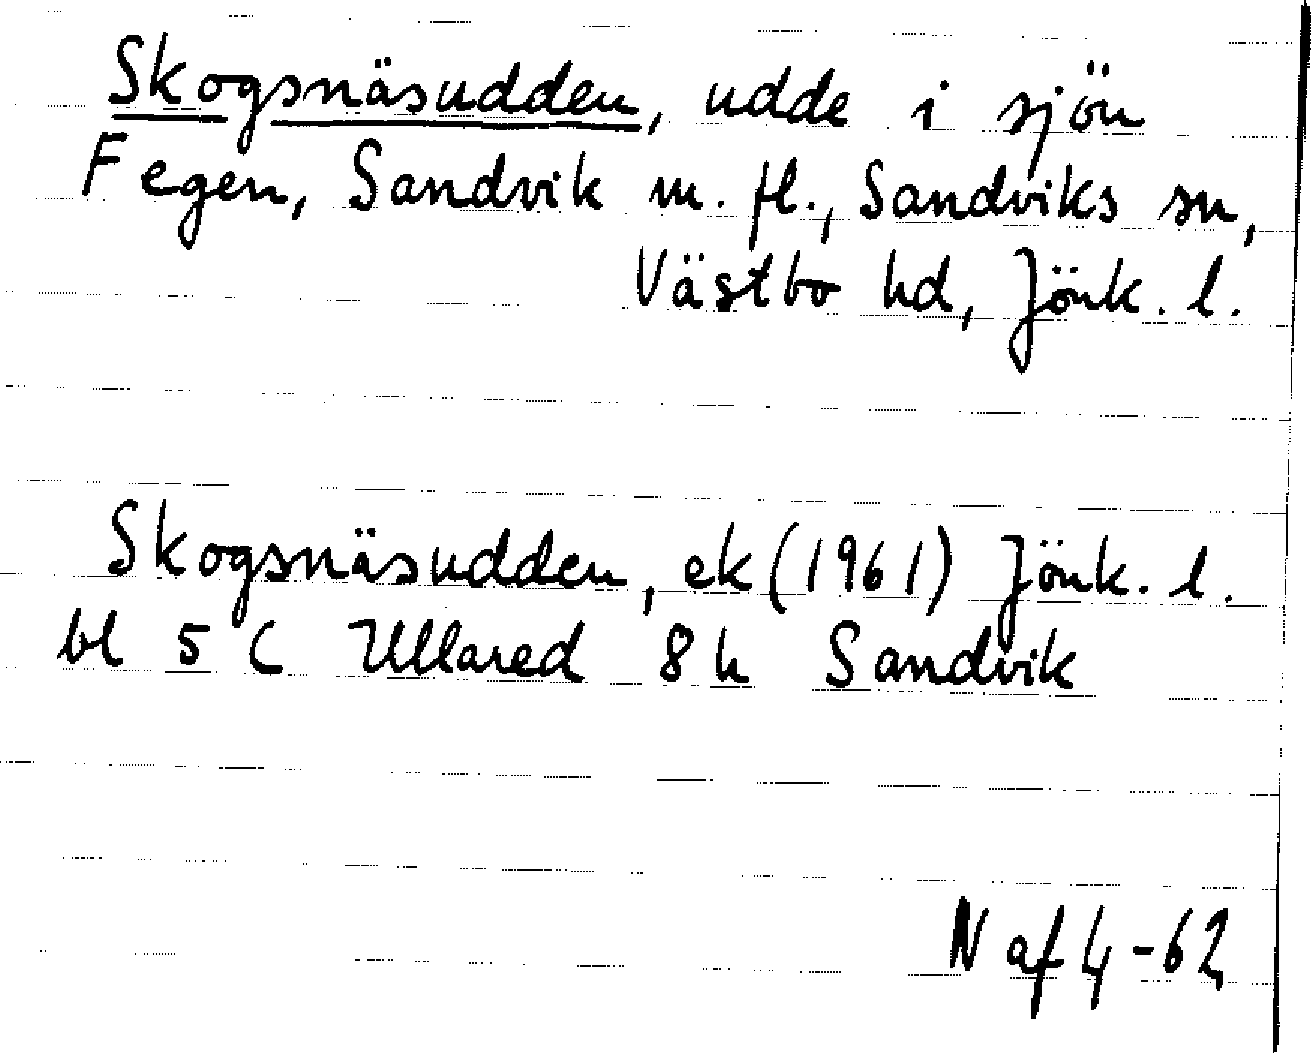 Skogsnäsudden, udde i sjön
Fegen, Sandvik m. fl., Sandviks sn,
Västbo hd, Jönk. l.
Skogsnäsudden, ek (1961) Jönk. l.
bl 5 C Ullared 8 h Sandvik
N af 4-62